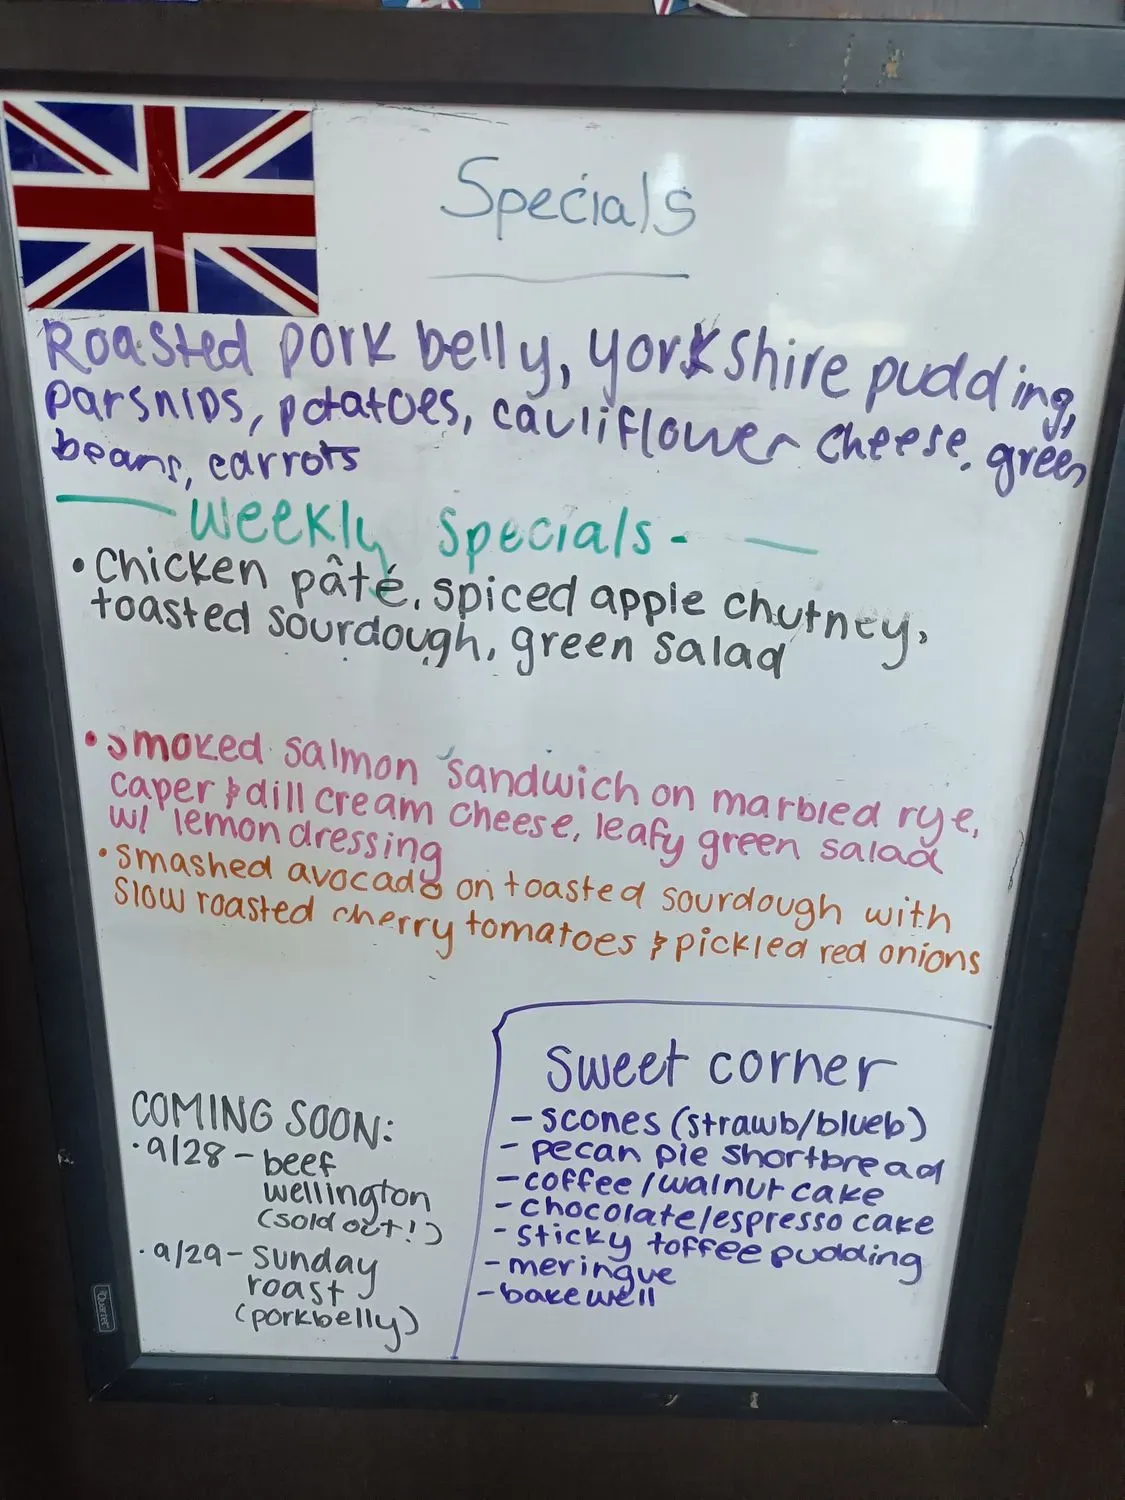 Specials
Roasted pork belly, yorkshire pudding,
parsnips, potatoes, cauliflower cheese, green
beans, carrots
Weekly Specials -
• Chicken pâté, spiced apple chutney,
toasted sourdough, green salad
• smoked salmon sandwich on marbled rye,
caper & dill cream cheese, leafy green salad
w/ lemon dressing
• smashed avocado on toasted sourdough with
slow roasted cherry tomatoes & pickled red onions
COMING SOON:
• 9/28 - beef
wellington
(sold out!)
• 9/29 - sunday
roast
(porkbelly)
Sweet corner
- scones (strawb/blueb)
- pecan pie shortbread
- coffee/walnut cake
- chocolate/espresso cake
- sticky toffee pudding
- meringue
- bakewell
Quartet